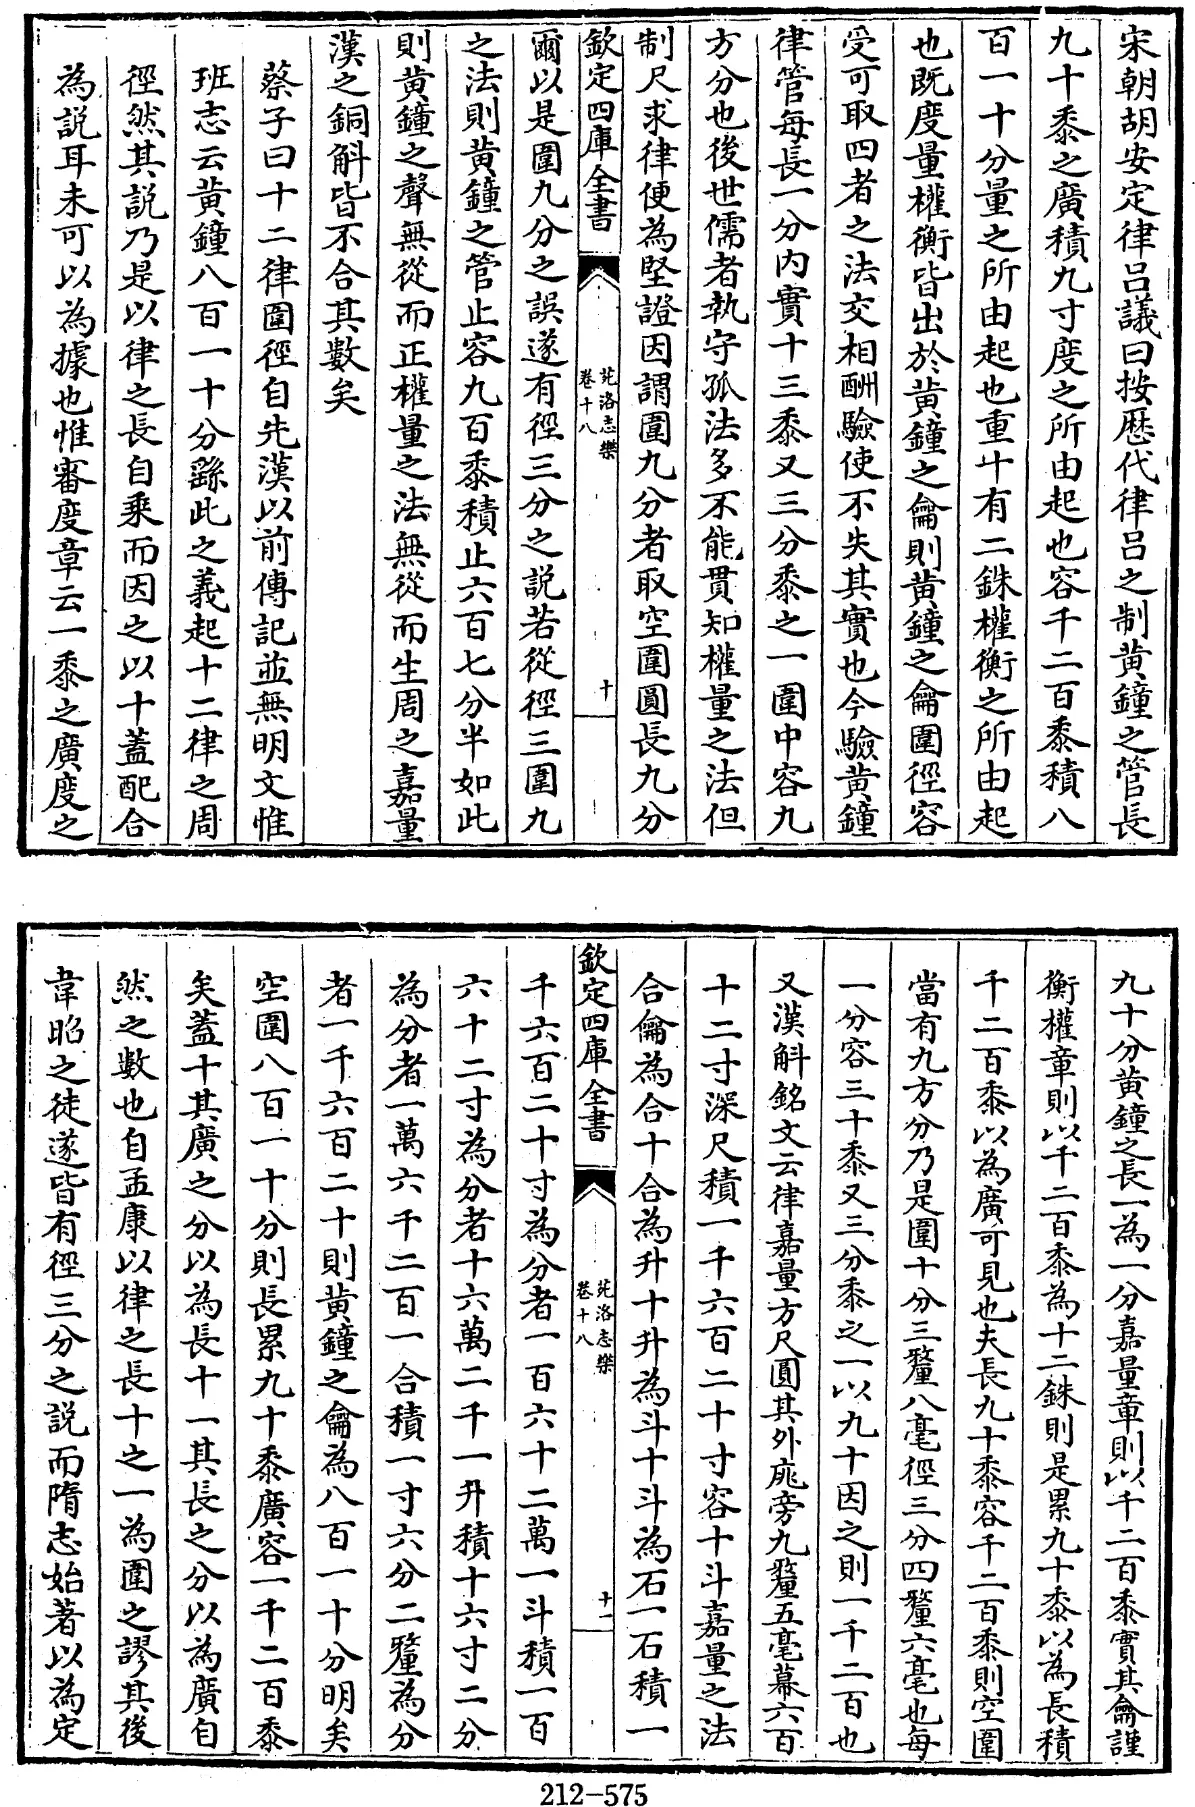 宋朝胡安定律呂議曰按歷代律呂之制黃鐘之管長
九十黍之廣積九寸度之所由起也容千二百黍積八
百一十分量之所由起也重十有二銖權衡之所由起
也既度量權衡皆出於黃鐘之龠則黃鐘之龠圍徑容
受可取四者之法交相酬驗使不失其實也今驗黃鐘
律管每長一分內實十三黍又三分黍之一圍中容九
方分也後世儒者執守孤法多不能貫知權量之法但
制尺求律便為堅證因謂圍九分者取空圍圓長九分
欽定四庫全書
苑洛志樂
卷十八
十
爾以是圍九分之誤遂有徑三分之說若從徑三圍九
之法則黃鐘之管止容九百黍積止六百七分半如此
則黃鐘之聲無從而正權量之法無從而生周之嘉量
漢之銅斛皆不合其數矣
蔡子曰十二律圍徑自先漢以前傳記並無明文惟
班志云黃鐘八百一十分繇此之義起十二律之周
徑然其說乃是以律之長自乘而因之以十蓋配合
為說耳未可以為據也惟審度章云一黍之廣度之
九十分黃鐘之長一為一分嘉量章則以千二百黍實其龠謹
衡權章則以千二百黍為十二銖則是累九十黍以為長積
千二百黍以為廣可見也夫長九十黍容千二百黍則空圍
當有九方分乃是圍十分三釐八毫徑三分四釐六毫也每
一分容三十黍又三分黍之一以九十因之則一千二百也
又漢斛銘文云律嘉量方尺圓其外庣旁九釐五毫冪六百
十二寸深尺積一千六百二十寸容十斗嘉量之法
合龠為合十合為升十升為斗十斗為石一石積一
欽定四庫全書
苑洛志樂
卷十八
十一
千六百二十寸為分者一百六十二萬一斗積一百
六十二寸為分者十六萬二千一升積十六寸二分
為分者一萬六千二百一合積一寸六分二釐為分
者一千六百二十則黃鐘之龠為八百一十分明矣
空圍八百一十分則長累九十黍廣容一千二百黍
矣蓋十其廣之分以為長十一其長之分以為廣自
然之數也自孟康以律之長十之一為圍之謬其後
韋昭之徒遂皆有徑三分之說而隋志始著以為定
212-575